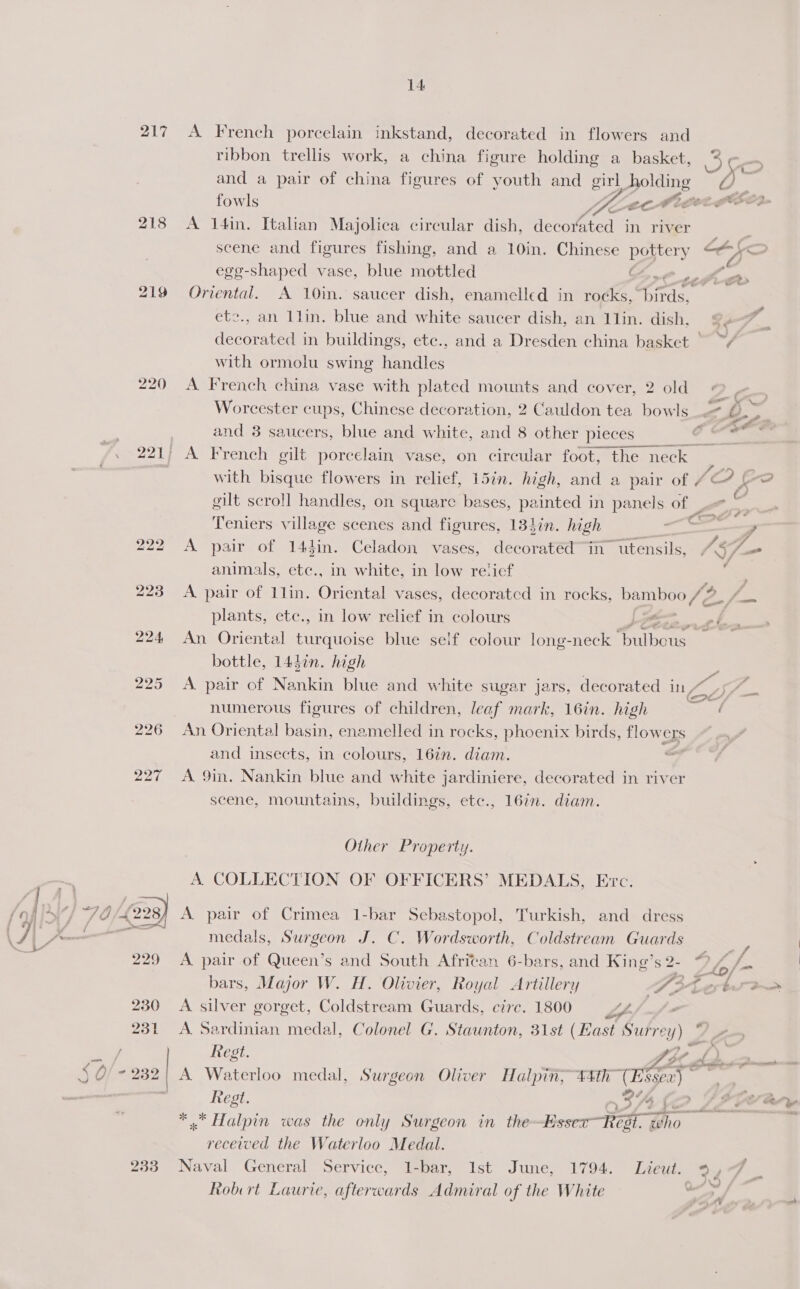 14
217 A French porcelain inkstand, decorated in flowers and
ribbon trellis work, a china figure holding a basket,
and a pair of china figures of youth and girl holding
fowls
218 A 14in. Italian Majolica circular dish, decorated in river
scene and figures fishing, and a 10in. Chinese pottery
egg-shaped vase, blue mottled
219 Oriental. A 10in. saucer dish, enamelled in rocks, birds,
etc., an 11in. blue and white saucer dish, an 11in. dish,
decorated in buildings, etc., and a Dresden china basket
with ormolu swing handles
220 A French china vase with plated mounts and cover, 2 old
Worcester cups, Chinese decoration, 2 Cauldon tea bowls
and 3 saucers, blue and white, and 8 other pieces
221 A French gilt porcelain vase, on circular foot, the neck
with bisque flowers in relief, 15in. high, and a pair of
gilt scroll handles, on square bases, painted in panels of
Teniers village scenes and figures, 13½in. high
222 A pair of 14½in. Celadon vases, decorated in utensils,
animals, etc., in white, in low relief
223 A pair of 11in. Oriental vases, decorated in rocks, bamboo
plants, etc., in low relief in colours
224 An Oriental turquoise blue self colour long-neck bulbous
bottle, 14½in. high
225 A pair of Nankin blue and white sugar jars, decorated in
numerous figures of children, leaf mark, 16in. high
226 An Oriental basin, enamelled in rocks, phoenix birds, flowers
and insects, in colours, 16in. diam.
227 A 9in. Nankin blue and white jardiniere, decorated in river
scene, mountains, buildings, etc., 16in. diam.
Other Property.
A COLLECTION OF OFFICERS' MEDALS, ETC.
228 A pair of Crimea 1-bar Sebastopol, Turkish, and dress
medals, Surgeon J. C. Wordsworth, Coldstream Guards
229 A pair of Queen's and South African 6-bars, and King's 2-
bars, Major W. H. Olivier, Royal Artillery
230 A silver gorget, Coldstream Guards, circ. 1800
231 A Sardinian medal, Colonel G. Staunton, 31st (East Surrey)
Regt.
232 A Waterloo medal, Surgeon Oliver Halpin, 44th (Essex)
Regt.
*** Halpin was the only Surgeon in the Essex Regt. who
received the Waterloo Medal.
233 Naval General Service, 1-bar, 1st June, 1794. Lieut.
Robert Laurie, afterwards Admiral of the White